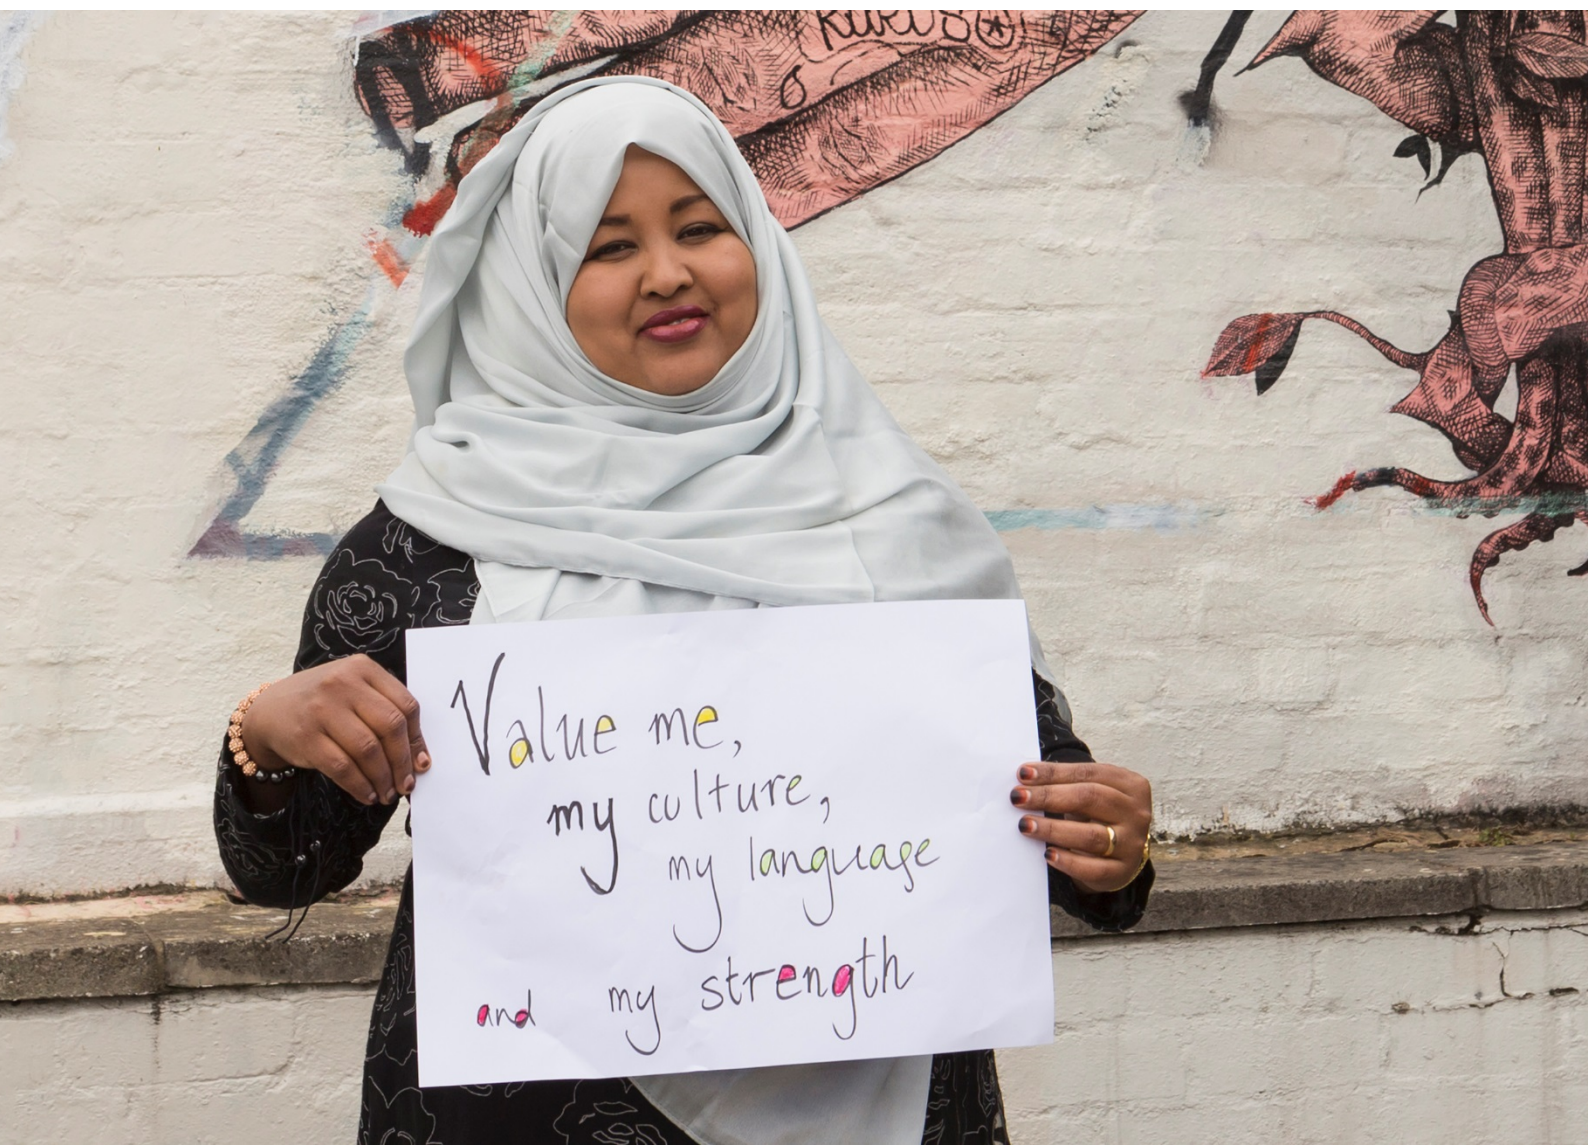 Value me,
my culture,
my language
and my strength